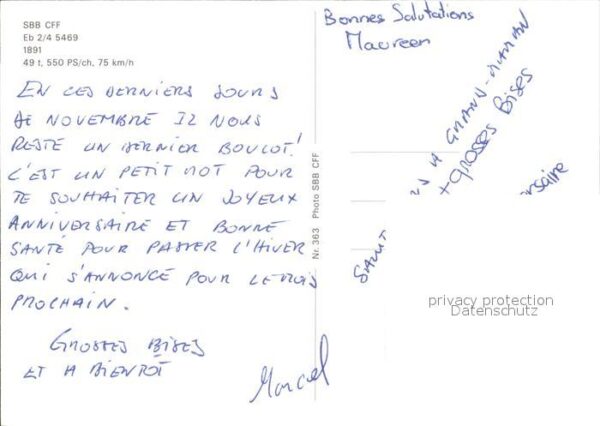 SBB CFF
Eb 2/4 5469
1891
49 t, 550 PS/ch, 75 km/h
EN CES DERNIERS JOURS
DE NOVEMBRE IL NOUS
RESTE UN DERNIER BOULOT!
C'EST UN PETIT MOT POUR
TE SOUHAITER UN JOYEUX
ANNIVERSAIRE ET BONNE
SANTÉ POUR PASSER L'HIVER
QUI S'ANNONCE POUR LE MOIS
PROCHAIN.
GROSSES BISES
ET A BIENTÔT
Marcel
Nr. 363 Photo SBB CFF
Bonnes Salutations
Maureen
A GRAND-MAMAN
+ GROSSES BISES
rsaire
privacy protection
Datenschutz